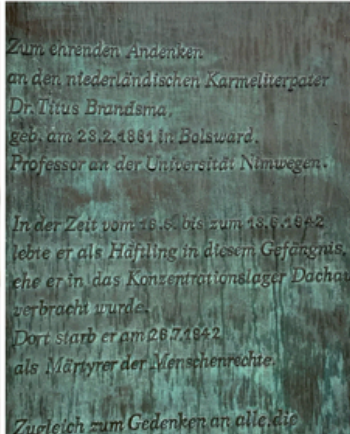 Zum ehrenden Andenken
an den niederländischen Karmeliterpater
Dr. Titus Brandsma,
geb. am 23.2.1881 in Bolsward.
Professor an der Universität Nimwegen.
In der Zeit vom 16.5. bis zum 13.6.1942
lebte er als Häftling in diesem Gefängnis,
ehe er in das Konzentrationslager Dachau
verbracht wurde.
Dort starb er am 26.7.1942
als Märtyrer der Menschenrechte.
Zugleich zum Gedenken an alle, die